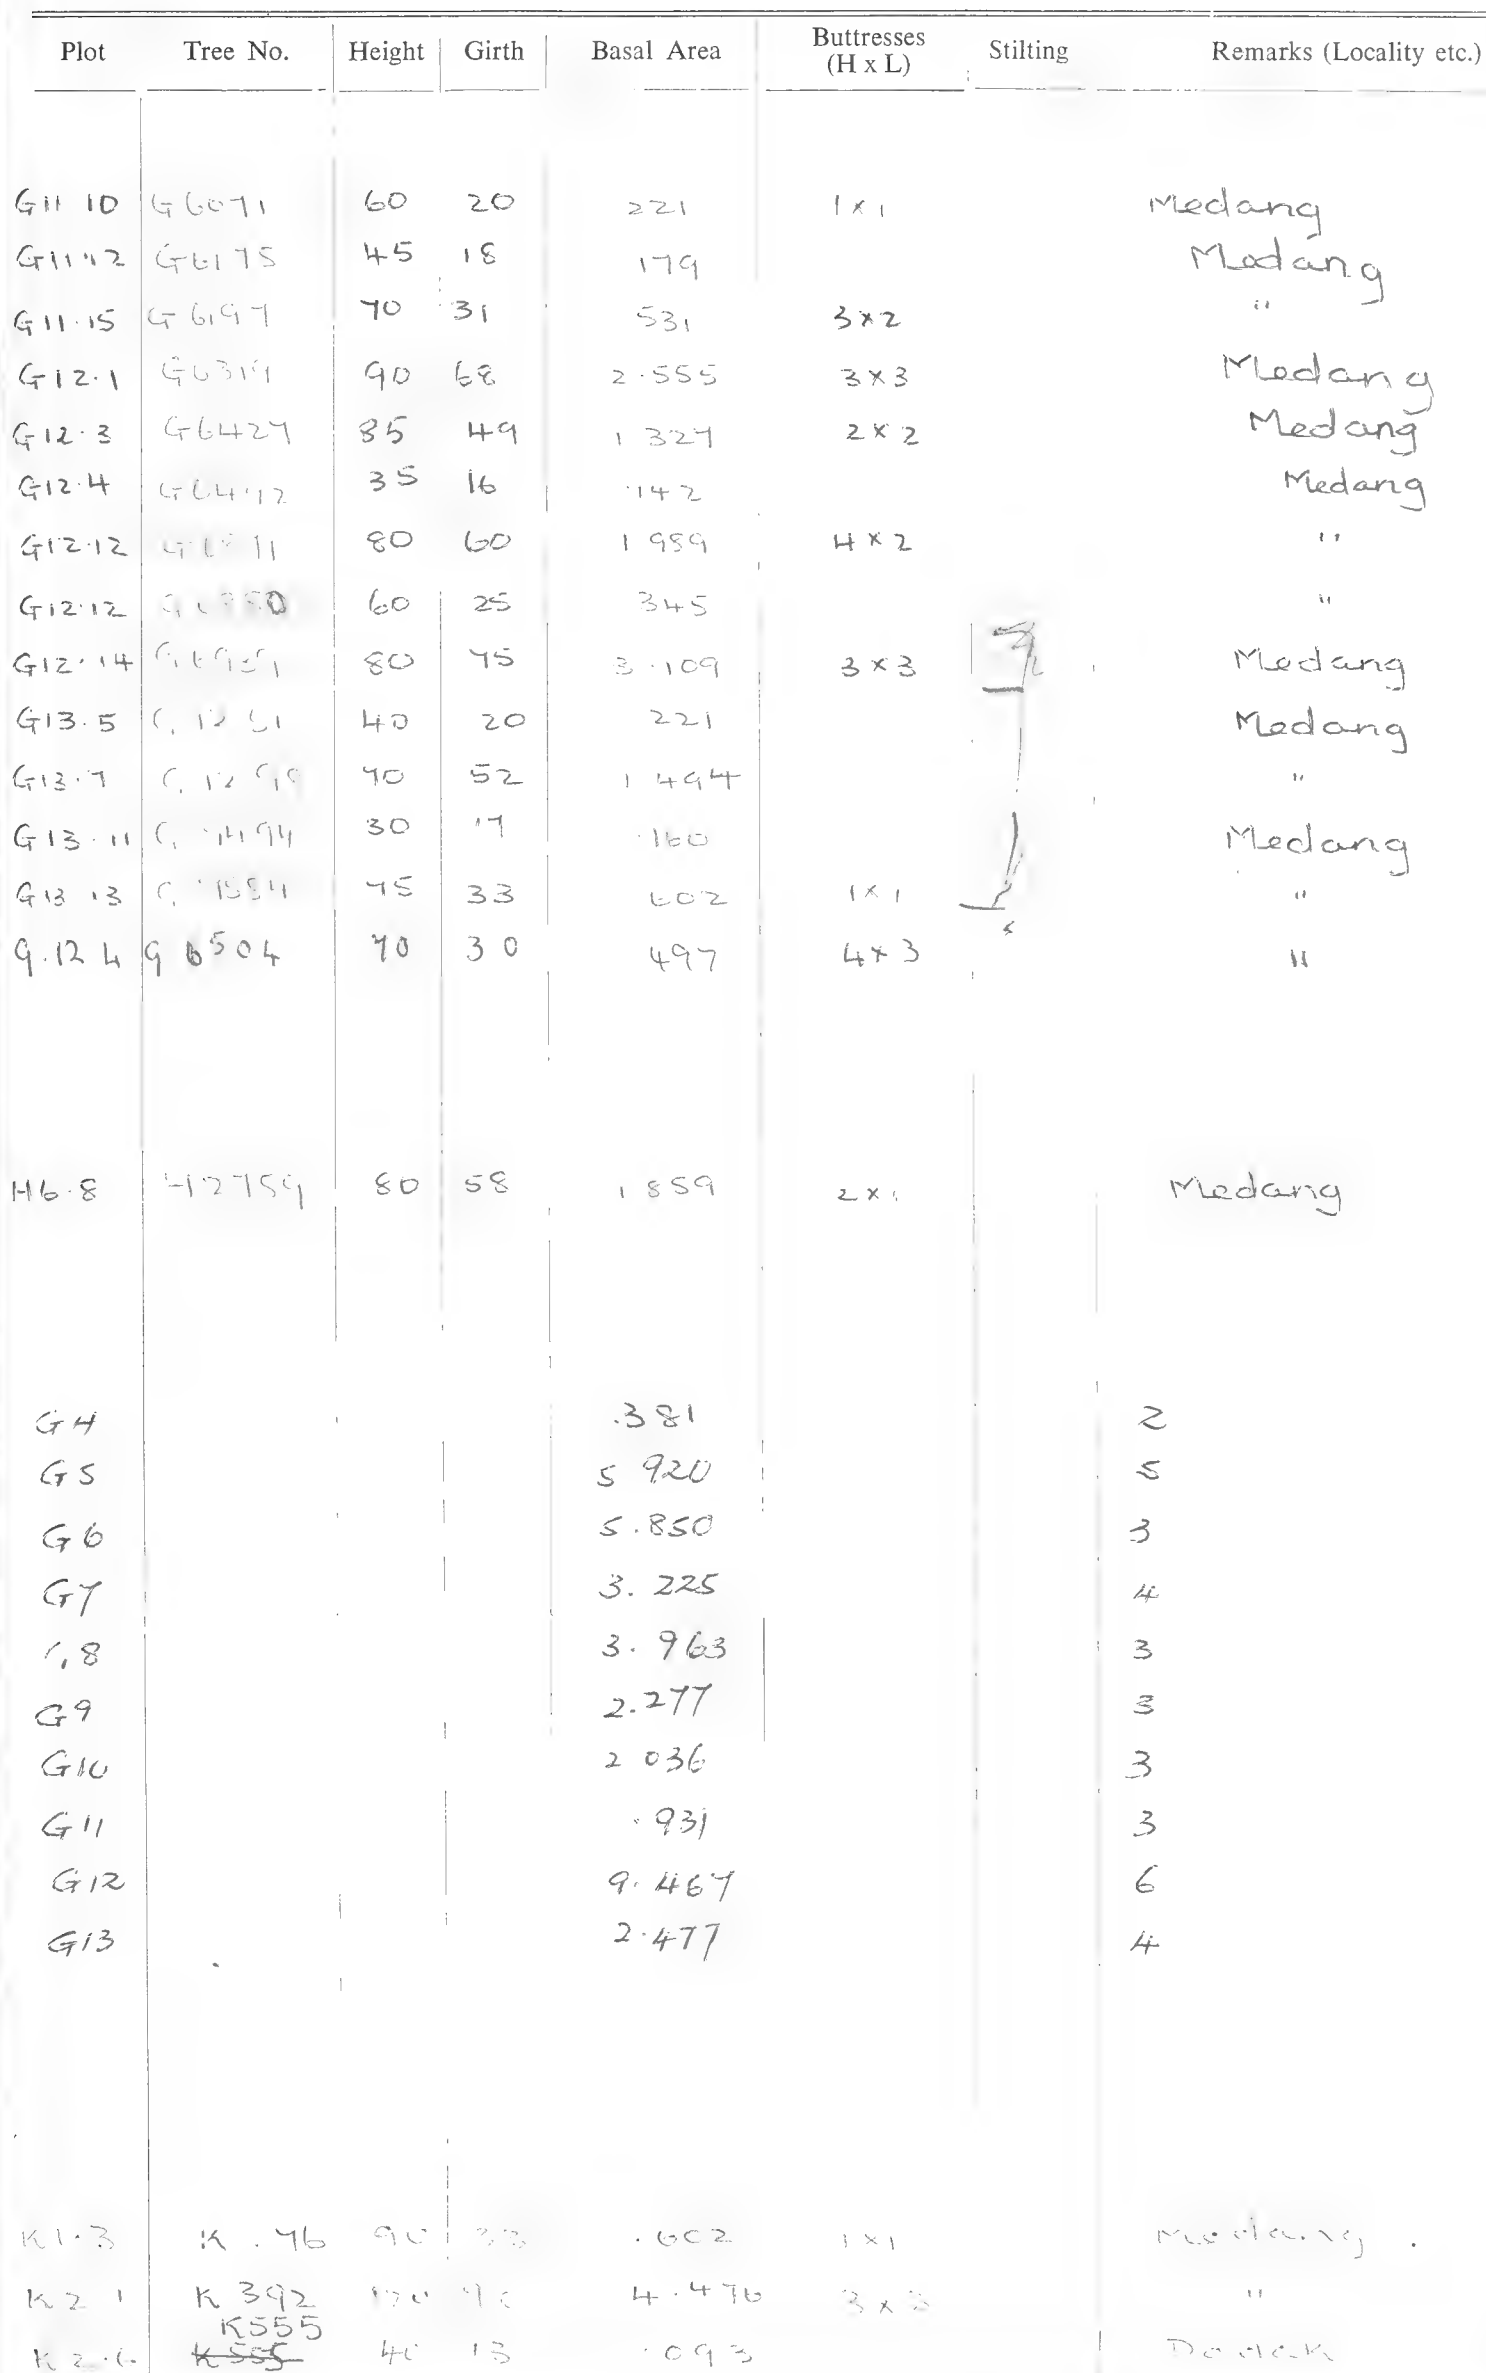 Plot Tree No. Height Girth Basal Area Buttresses (H x L) Stilting Remarks (Locality etc.)
G11 10 G6071 60 20 221 1 x 1 Medang
G11 12 G6175 45 18 179 Medang
G11.15 G6197 70 31 531 3 x 2 "
G12.1 G6319 90 68 2.555 3 x 3 Medang
G12.3 G6427 85 49 1 327 2 x 2 Medang
G12.4 35 16 .142 Medang
G12.12 80 60 1 989 4 x 2 "
G12.12 60 25 345 "
G12.14 80 75 3.109 3 x 3 Medang
G13.5 40 20 221 Medang
G13.7 70 52 1 494 "
G13.11 30 17 .160 Medang
G13 13 75 33 602 1 x 1 "
G.12 4 G 6504 70 30 497 4 x 3 "
H6.8 H2759 80 58 1 859 2 x 1 Medang
G4 .381 2
G5 5 920 5
G6 5.850 3
G7 3.225 4
G8 3.963 3
G9 2.277 3
G10 2 036 3
G11 .931 3
G12 9.467 6
G13 2.477 4
K1.3 K .76 90 33 .602 1 x 1 Medang .
K2 1 K 392 4.476 3 x 3 "
K555
K2.6 K555 40 13 .093